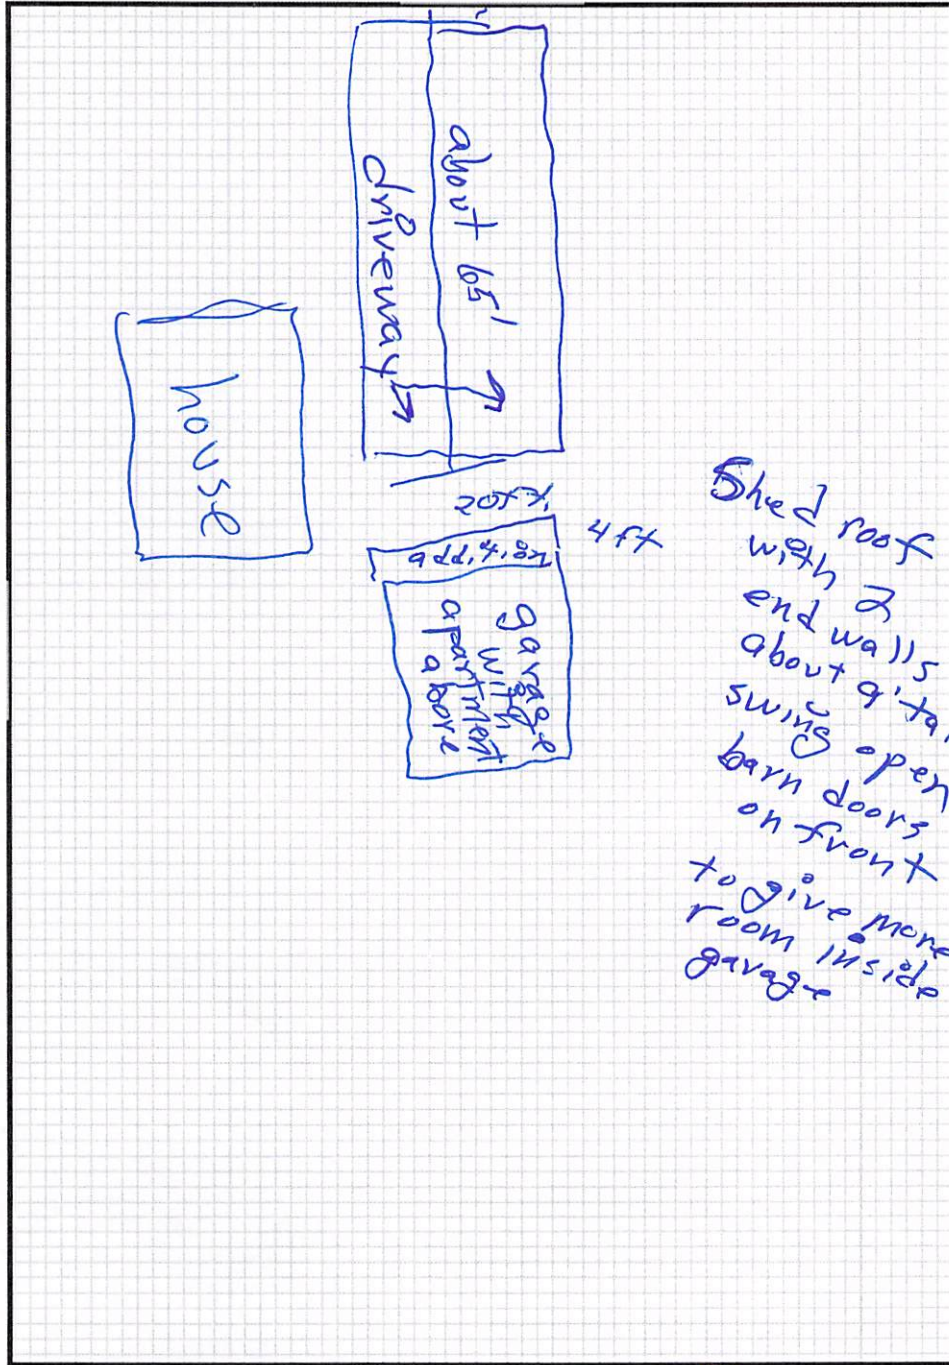 about 65'
driveway
house
20ft.
4ft
addition
garage
with
apartment
above
Shed roof
with 2
end walls
about 9' tal
swing open
barn doors
on front
to give more
room inside
garage